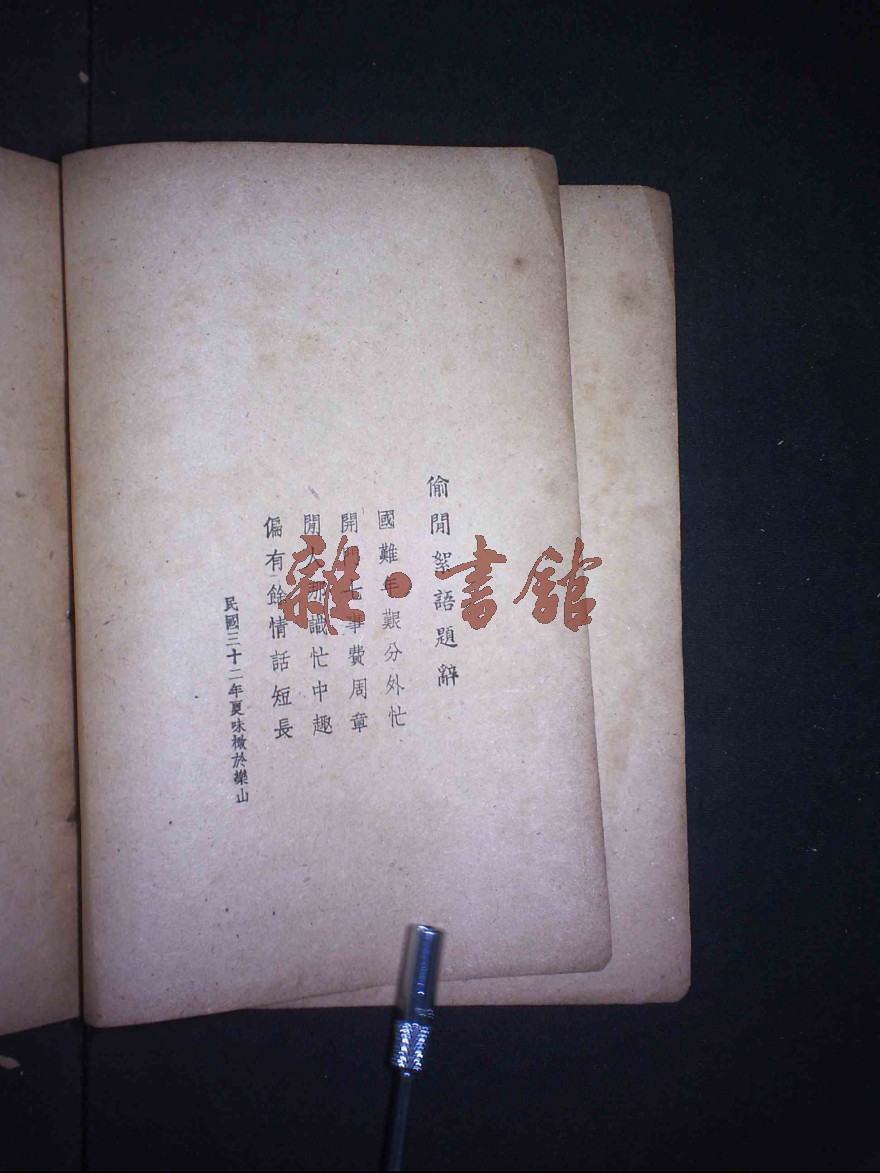 偷閒絮語題辭
國難年艱分外忙
開門七事費周章
閒人那識忙中趣
偏有餘情話短長
民國三十二年夏味橄於樂山
雜·書館